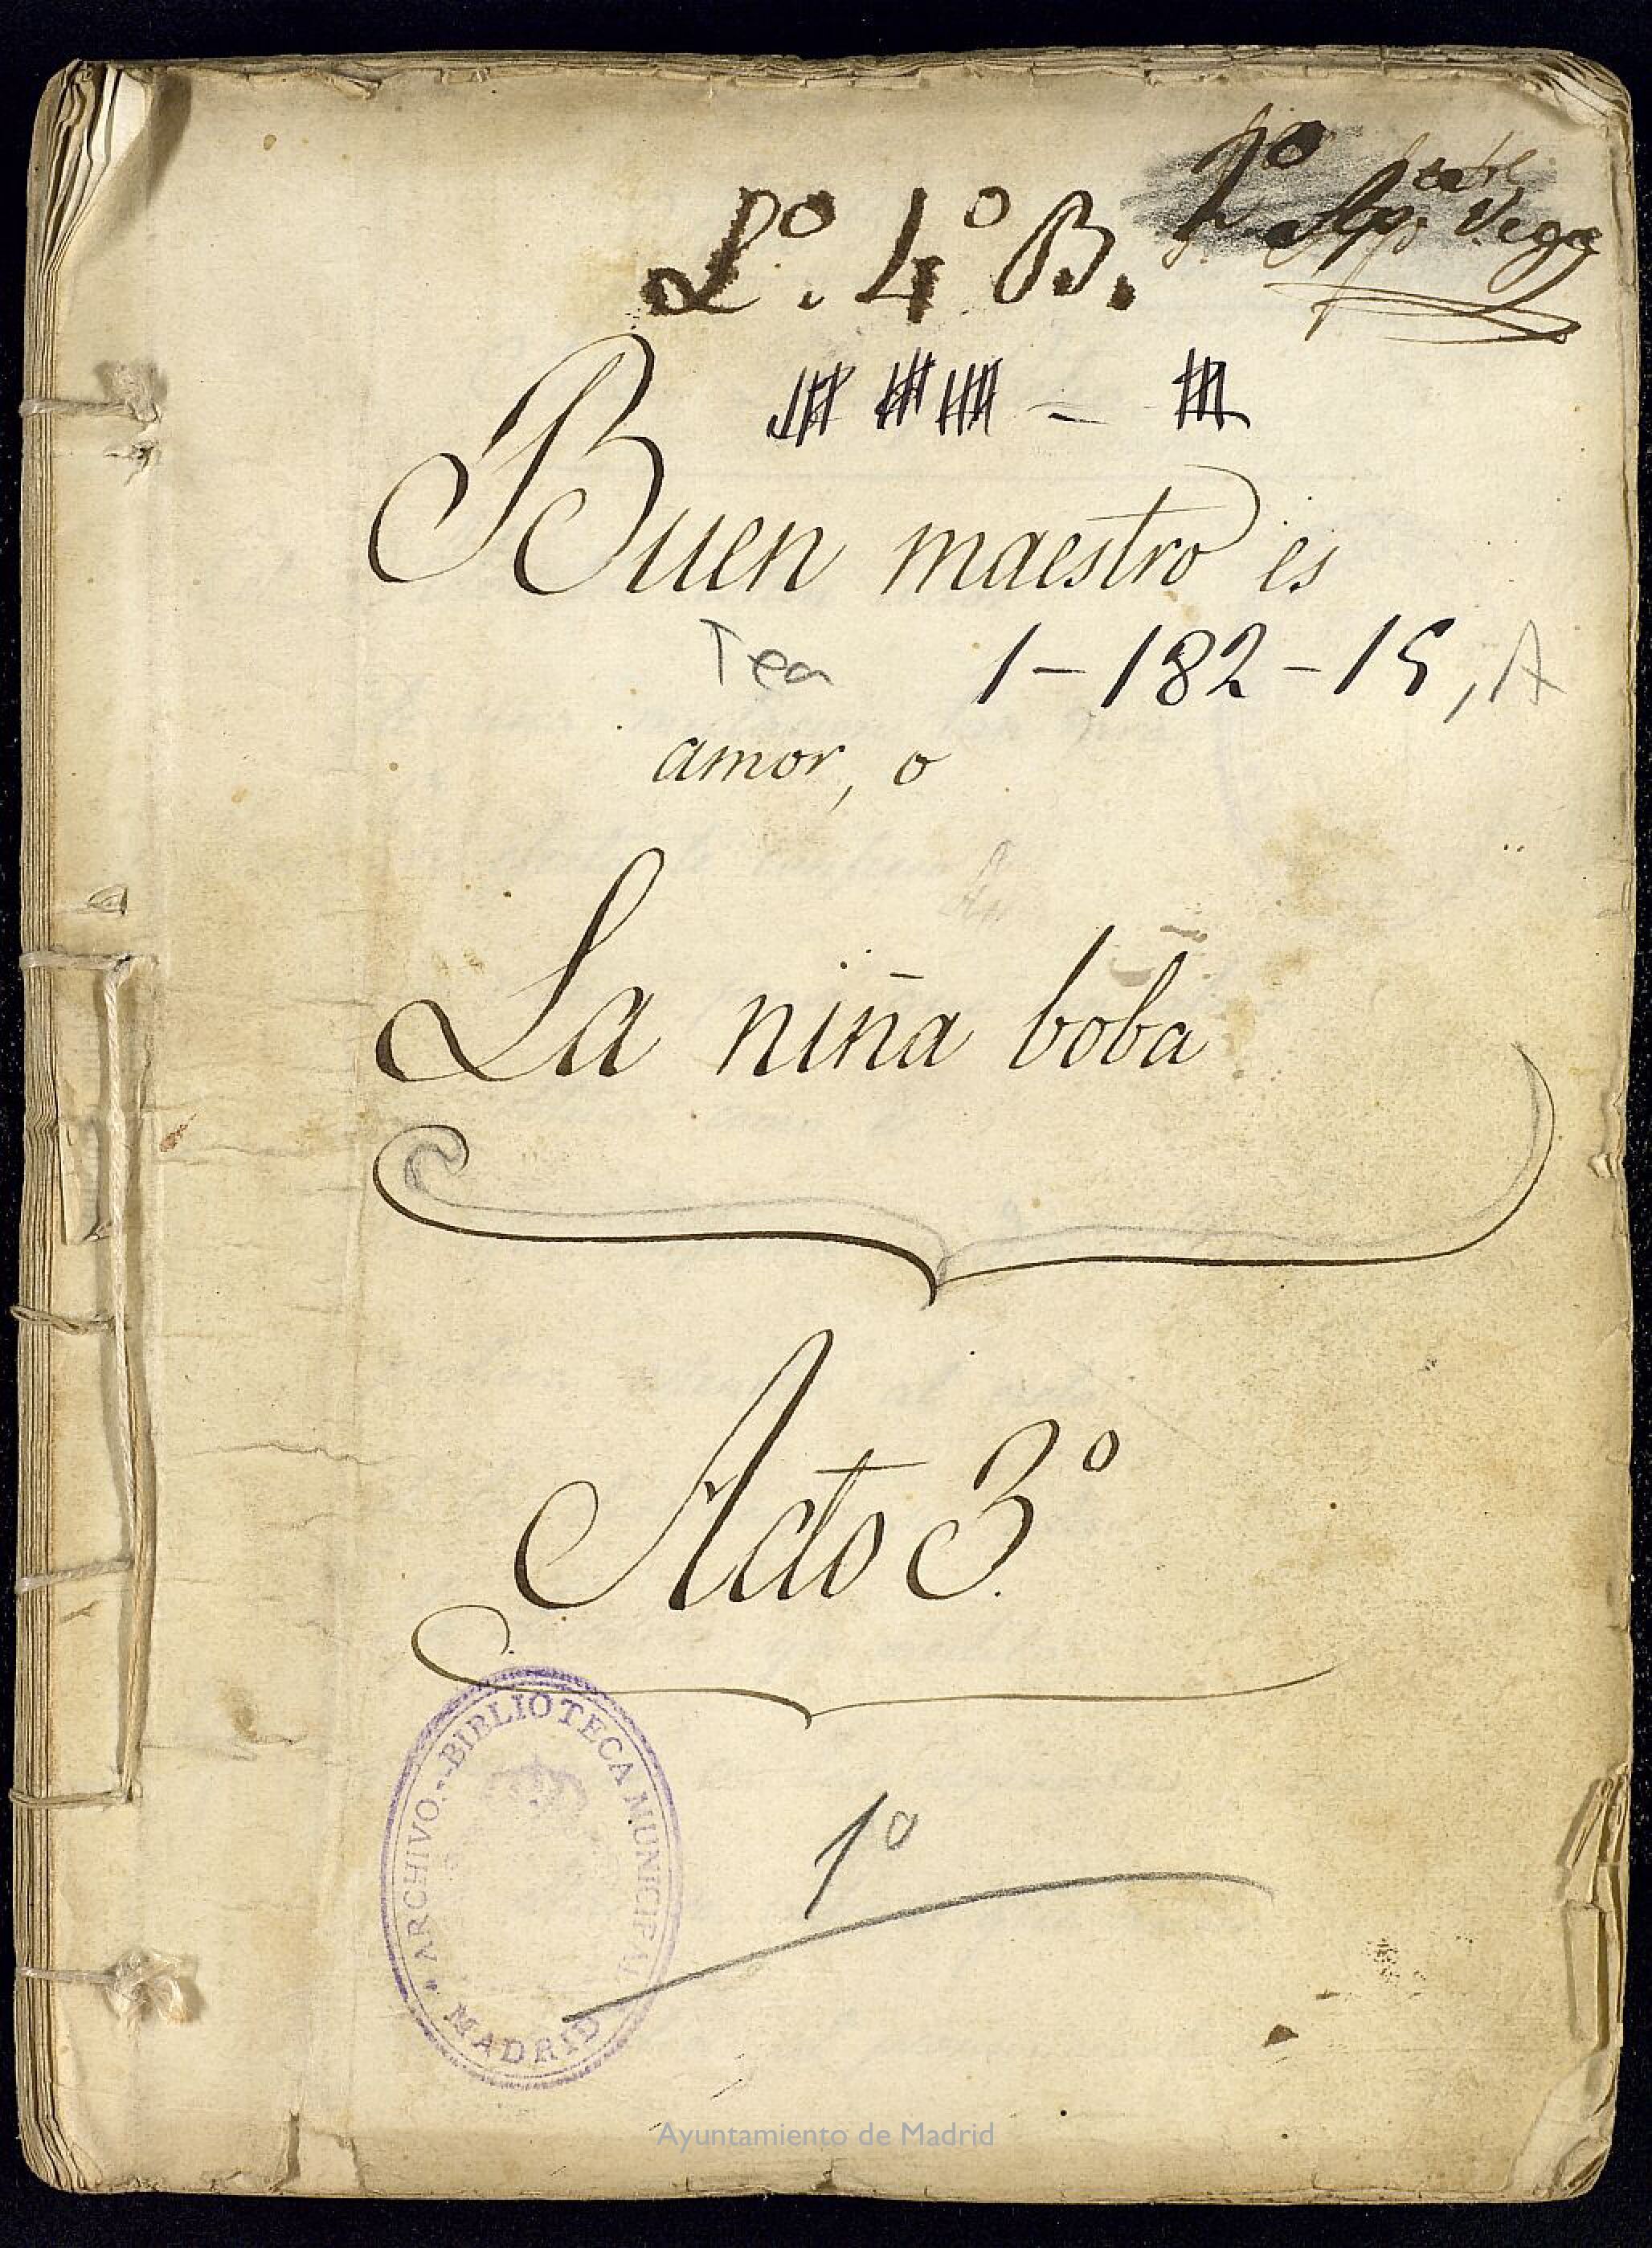 L.º 4º B.
Vega
Buen maestro es
Tea 1-182-15, A
amor, o
La niña boba
Acto 3º
1º
ARCHIVO.-BIBLIOTECA MUNICIPAL
* MADRID *
Ayuntamiento de Madrid